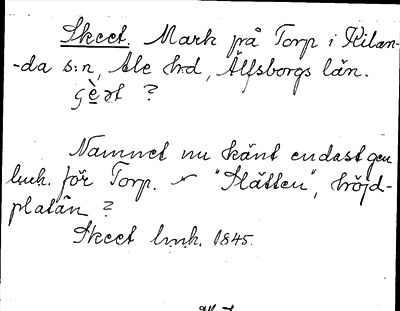 Skeet. Mark på Torp i Kilan-
-da s:n, Ale h:d, Älfsborgs län.
?
Namnet nu känt endast gen
lmk. för Torp. "Slätten", höjd-
platån ?
Skeet lmk. 1845.